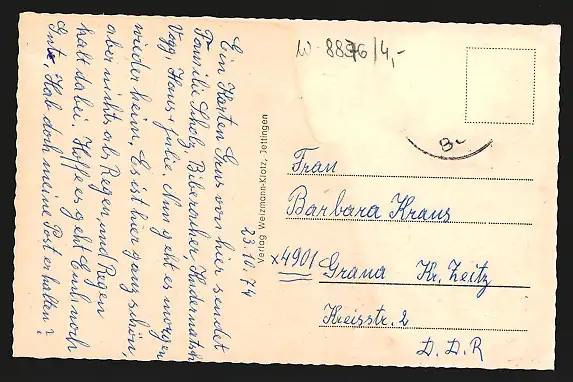 Ein Karten Grus von hier sendet
Familie Scholz, Biberacher,
Vogg, Hans + Julie. Nun geht es morgen
wieder heim, Es ist hier ganz schön,
aber nichts als Regen und Regen
halt dabei. Hoffe es geht Euch noch
Gut, Hab doch meine Post erhalten?
23.10.74
Verlag Weizmann-Klotz, Jettingen
W-8896/4,-
B-
Frau
Barbara Kraus
x4901 Grana Kr. Zeitz
Kreisstr. 2
D.D.R